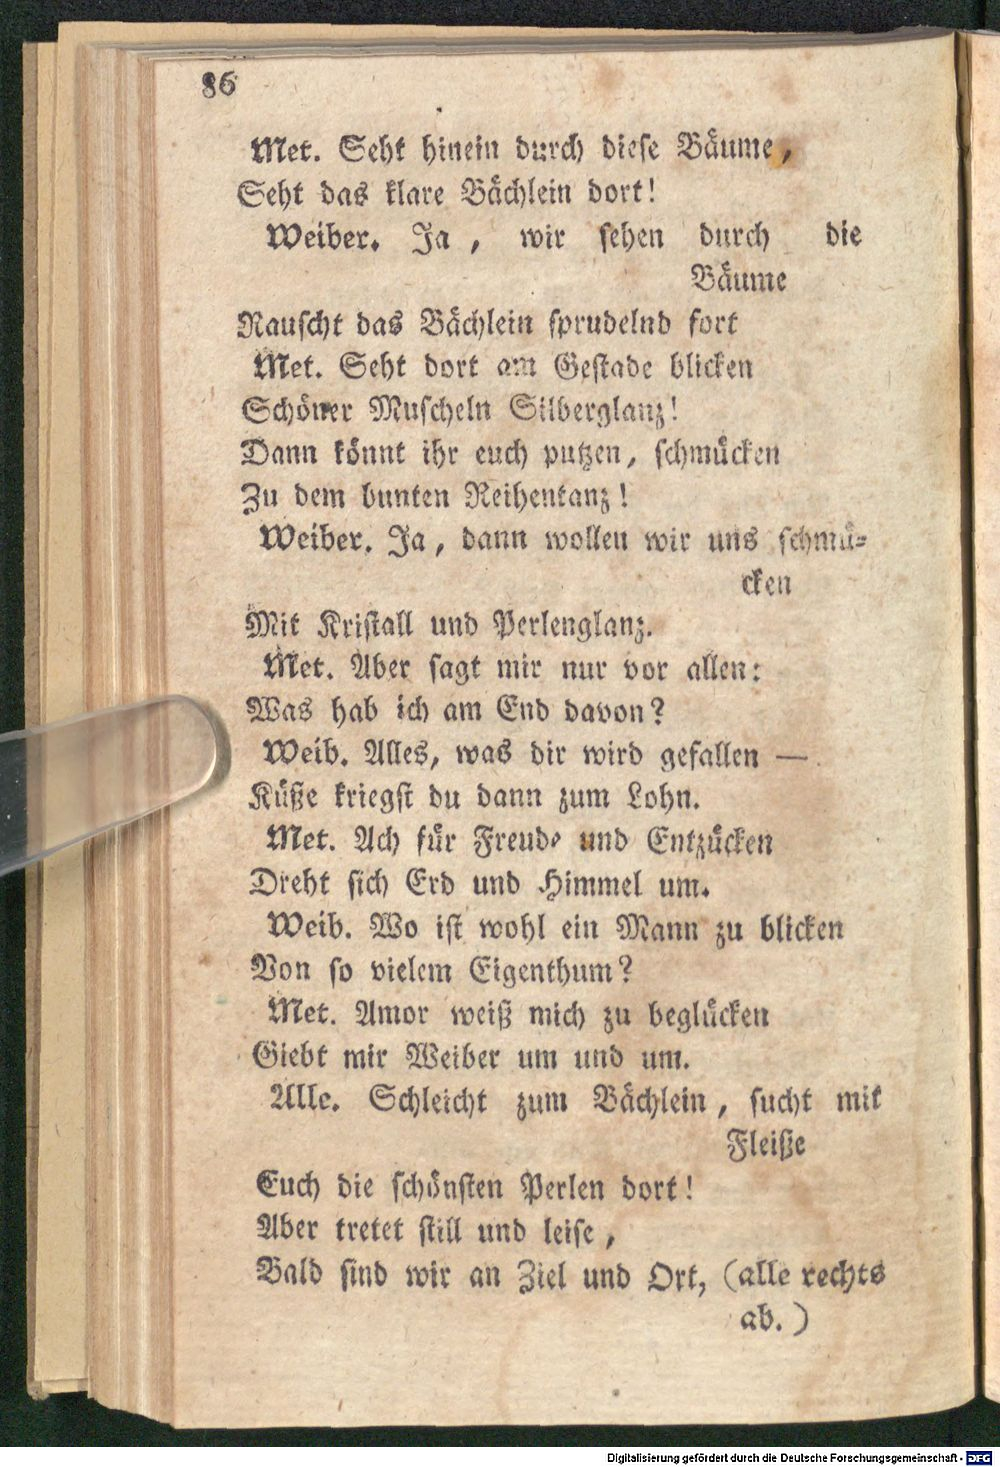 86
Met. Seht hinein durch diese Bäume,
Seht das klare Bächlein dort!
Weiber. Ja, wir sehen durch die
Bäume
Rauscht das Bächlein sprudelnd fort
Met. Seht dort am Gestade blicken
Schöner Muscheln Silberglanz!
Dann könnt ihr euch putzen, schmücken
Zu dem bunten Reihentanz!
Weiber. Ja, dann wollen wir uns schmü-
cken
Mit Kristall und Perlenglanz.
Met. Aber sagt mir nur vor allen:
Was hab ich am End davon?
Weib. Alles, was dir wird gefallen —
Küße kriegst du dann zum Lohn.
Met. Ach für Freude und Entzücken
Dreht sich Erd und Himmel um.
Weib. Wo ist wohl ein Mann zu blicken
Von so vielem Eigenthum?
Met. Amor weiß mich zu beglücken
Giebt mir Weiber um und um.
Alle. Schleicht zum Bächlein, sucht mit
Fleiße
Euch die schönsten Perlen dort!
Aber tretet still und leise,
Bald sind wir an Ziel und Ort, (alle rechts
ab.)
Digitalisierung gefördert durch die Deutsche Forschungsgemeinschaft - DFG